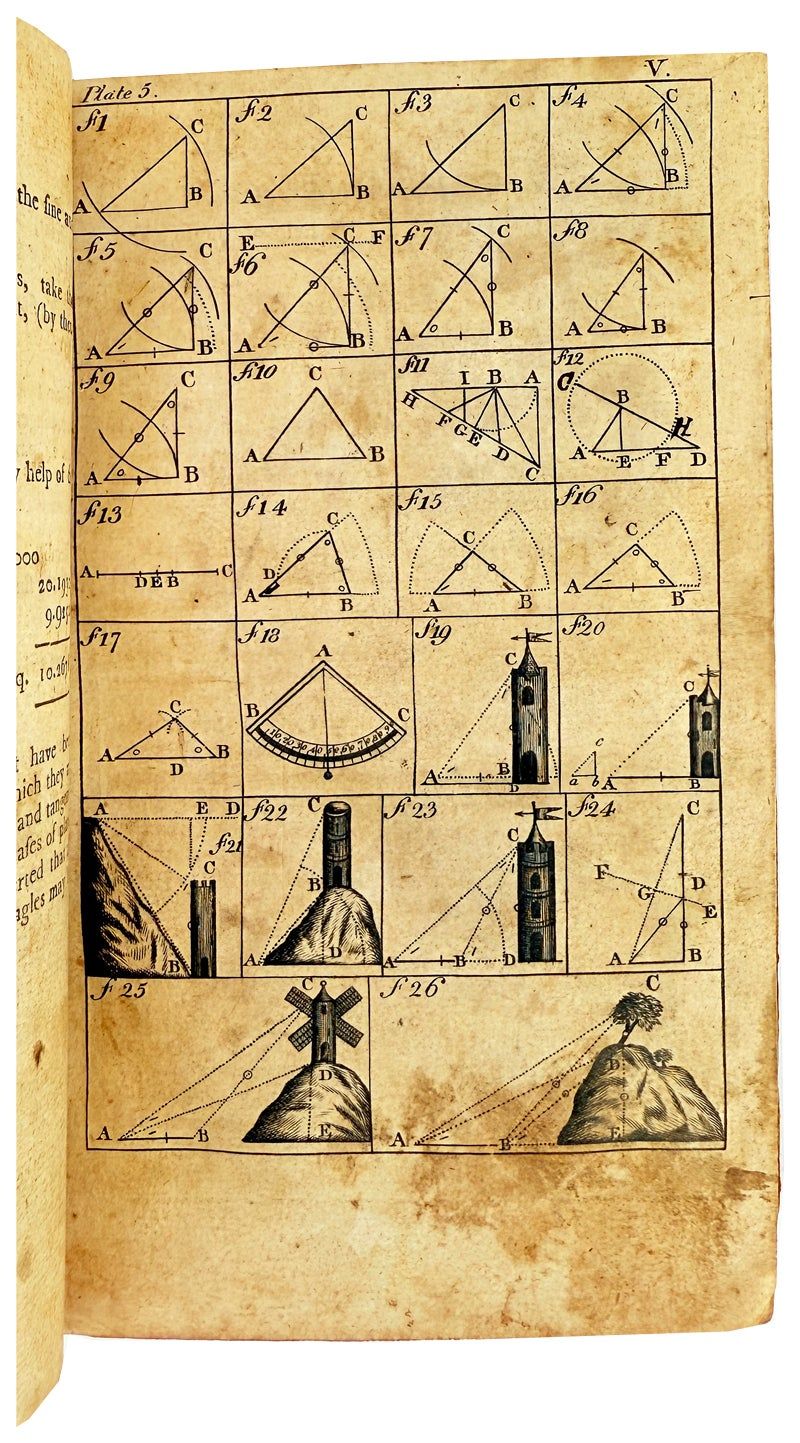 Plate 5. V.
f1 C A B
f2 C A B
f3 C A B
f4 C A B
f5 C A B
f6 E C F A B
f7 C A B
f8 C A B
f9 C A B
f10 C A B
f11 I B A H F G E D C
f12 C B H A E F D
f13 A D E B C
f14 C D A B
f15 C A B
f16 C A B
f17 C A D B
f18 A B C
f19 C A B D
f20 C c a b A B
A E D f21 C B
f22 C B A D
f23 C A B D
f24 C F G D E A B
f25 C D A B E
f26 C D A B E
the sine
s, take
t, (by
help of
000
20.19
9.9
q. 10.26
have
which they
and tang
rted that
angles may